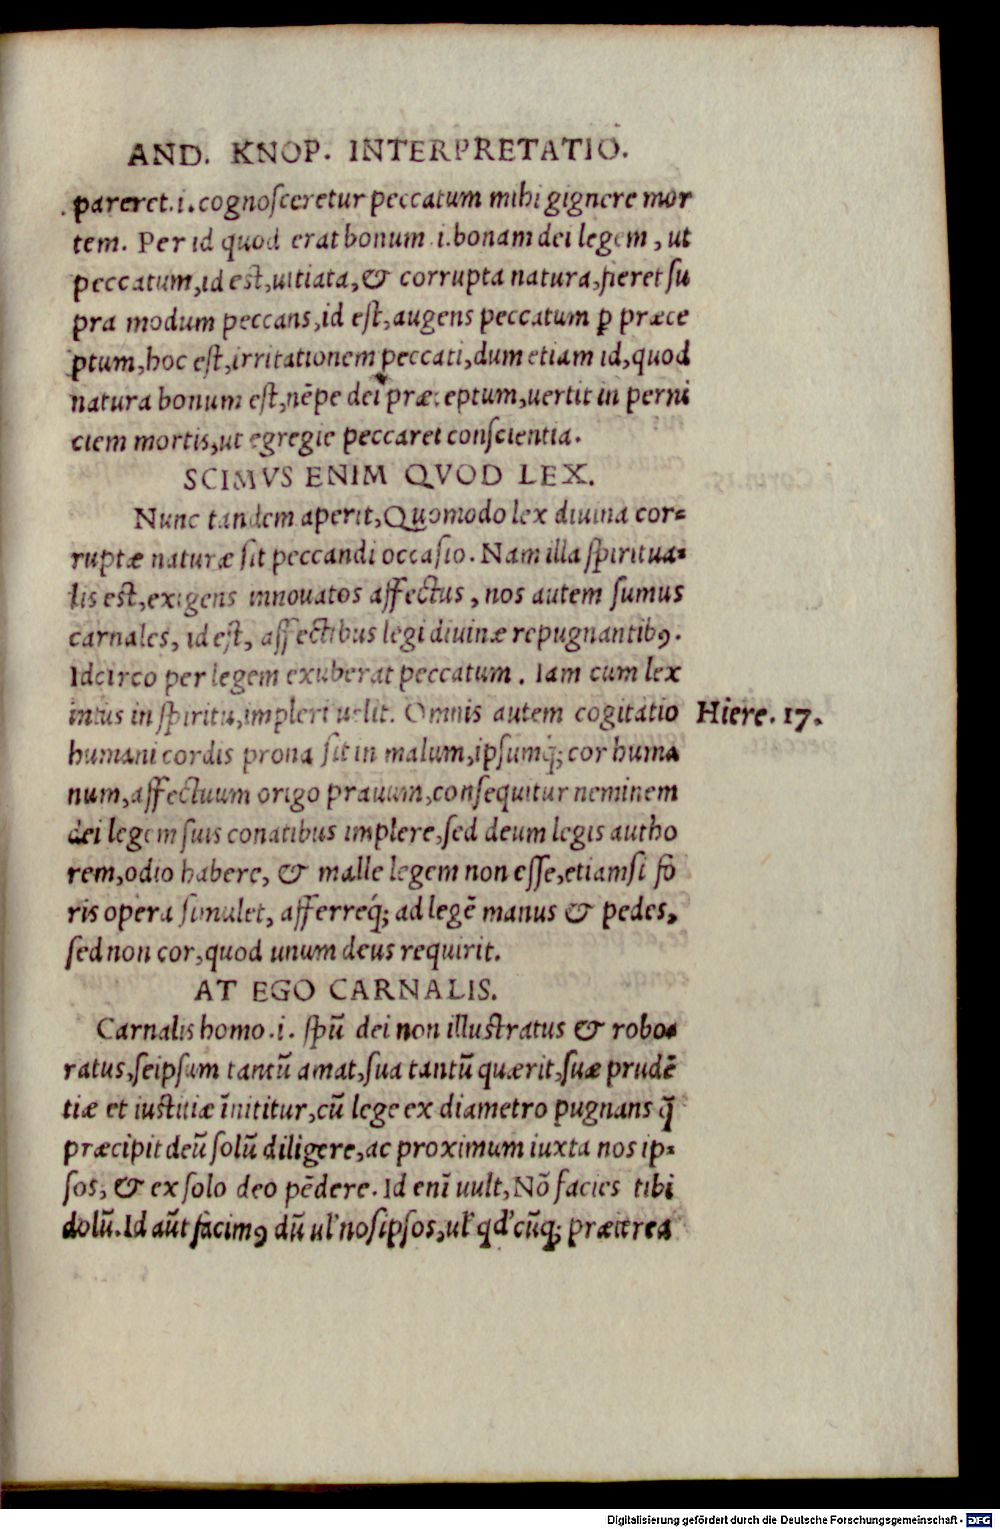 AND. KNOP. INTERPRETATIO.
pareret.i.cognosceretur peccatum mihi gignere mor
tem. Per id quod erat bonum .i.bonam dei legem, ut
peccatum,id est,uitiata,& corrupta natura,fieret su
pra modum peccans,id est,augens peccatum ꝑ præce
ptum,hoc est,irritationem peccati,dum etiam id,quod
natura bonum est,nēpe dei præceptum,uertit in perni
ciem mortis,ut egregie peccaret conscientia.
SCIMVS ENIM QVOD LEX.
Nunc tandem aperit,Quomodo lex diuina cor=
ruptæ naturæ sit peccandi occasio. Nam illa spiritua=
lis est,exigens innouatos affectus, nos autem sumus
carnales, id est, affectibus legi diuinæ repugnantibꝰ.
Idcirco per legem exuberat peccatum. Iam cum lex
intus in spiritu,impleri uelit. Omnis autem cogitatio Hiere. 17.
humani cordis prona sit in malum,ipsumq́; cor huma
num,affectuum origo prauum,consequitur neminem
dei legem suis conatibus implere,sed deum legis autho
rem,odio habere, & malle legem non esse,etiamsi fo
ris opera simulet, afferreq́; ad legē manus & pedes,
sed non cor,quod unum deus requirit.
AT EGO CARNALIS.
Carnalis homo.i. spū dei non illustratus & robo=
ratus,seipsum tantū amat,sua tantū quærit,suæ prudē
tiæ et iustitiæ īnititur,cū lege ex diametro pugnans q̄
præcipit deū solū diligere,ac proximum iuxta nos ip=
sos, & ex solo deo pēdere. Id enī uult,Nō facies tibi
dolū.Id aūt facimꝰ dū ul' nosipsos,ul' qd' cūq; præterea
Digitalisierung gefördert durch die Deutsche Forschungsgemeinschaft - DFG